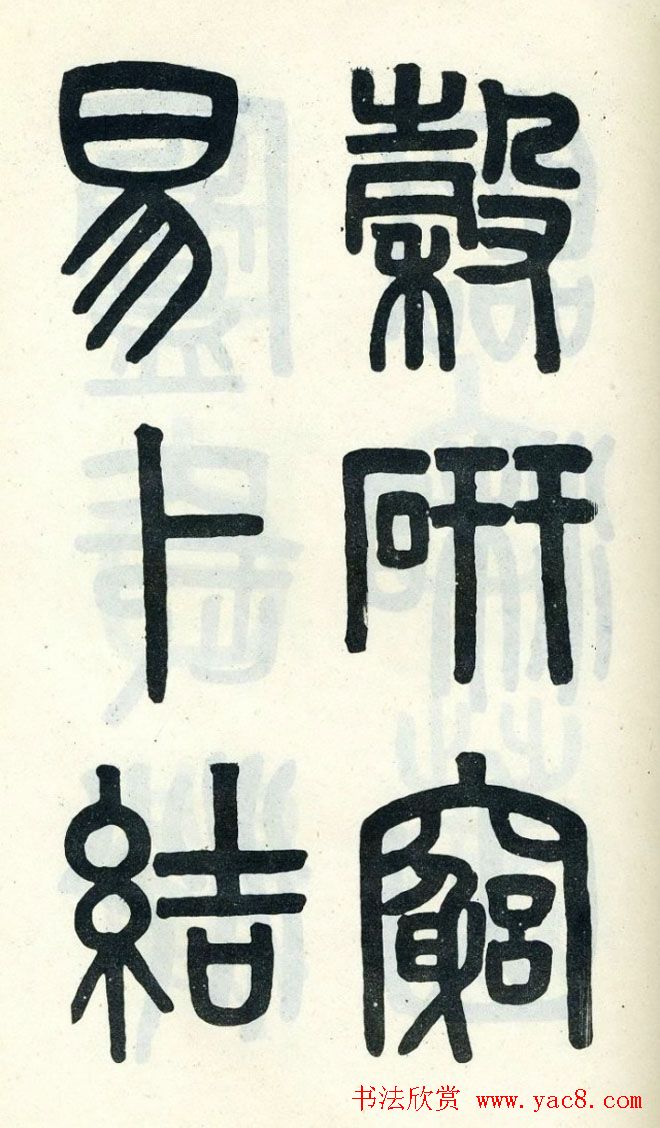 穀研窮
易卜結
书法欣赏 www.yac8.com